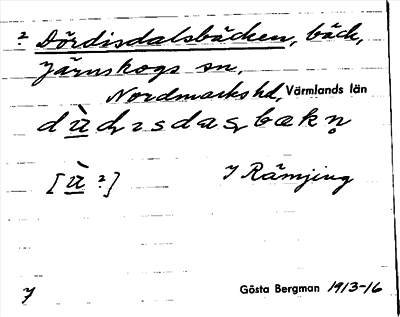 ? Dördisdalsbäcken, bäck,
Järnskogs sn,
Nordmarks hd, Värmlands län
dùdɩsdasbækn̥
[ù ?]
J Rämjing
7
Gösta Bergman 1913-16